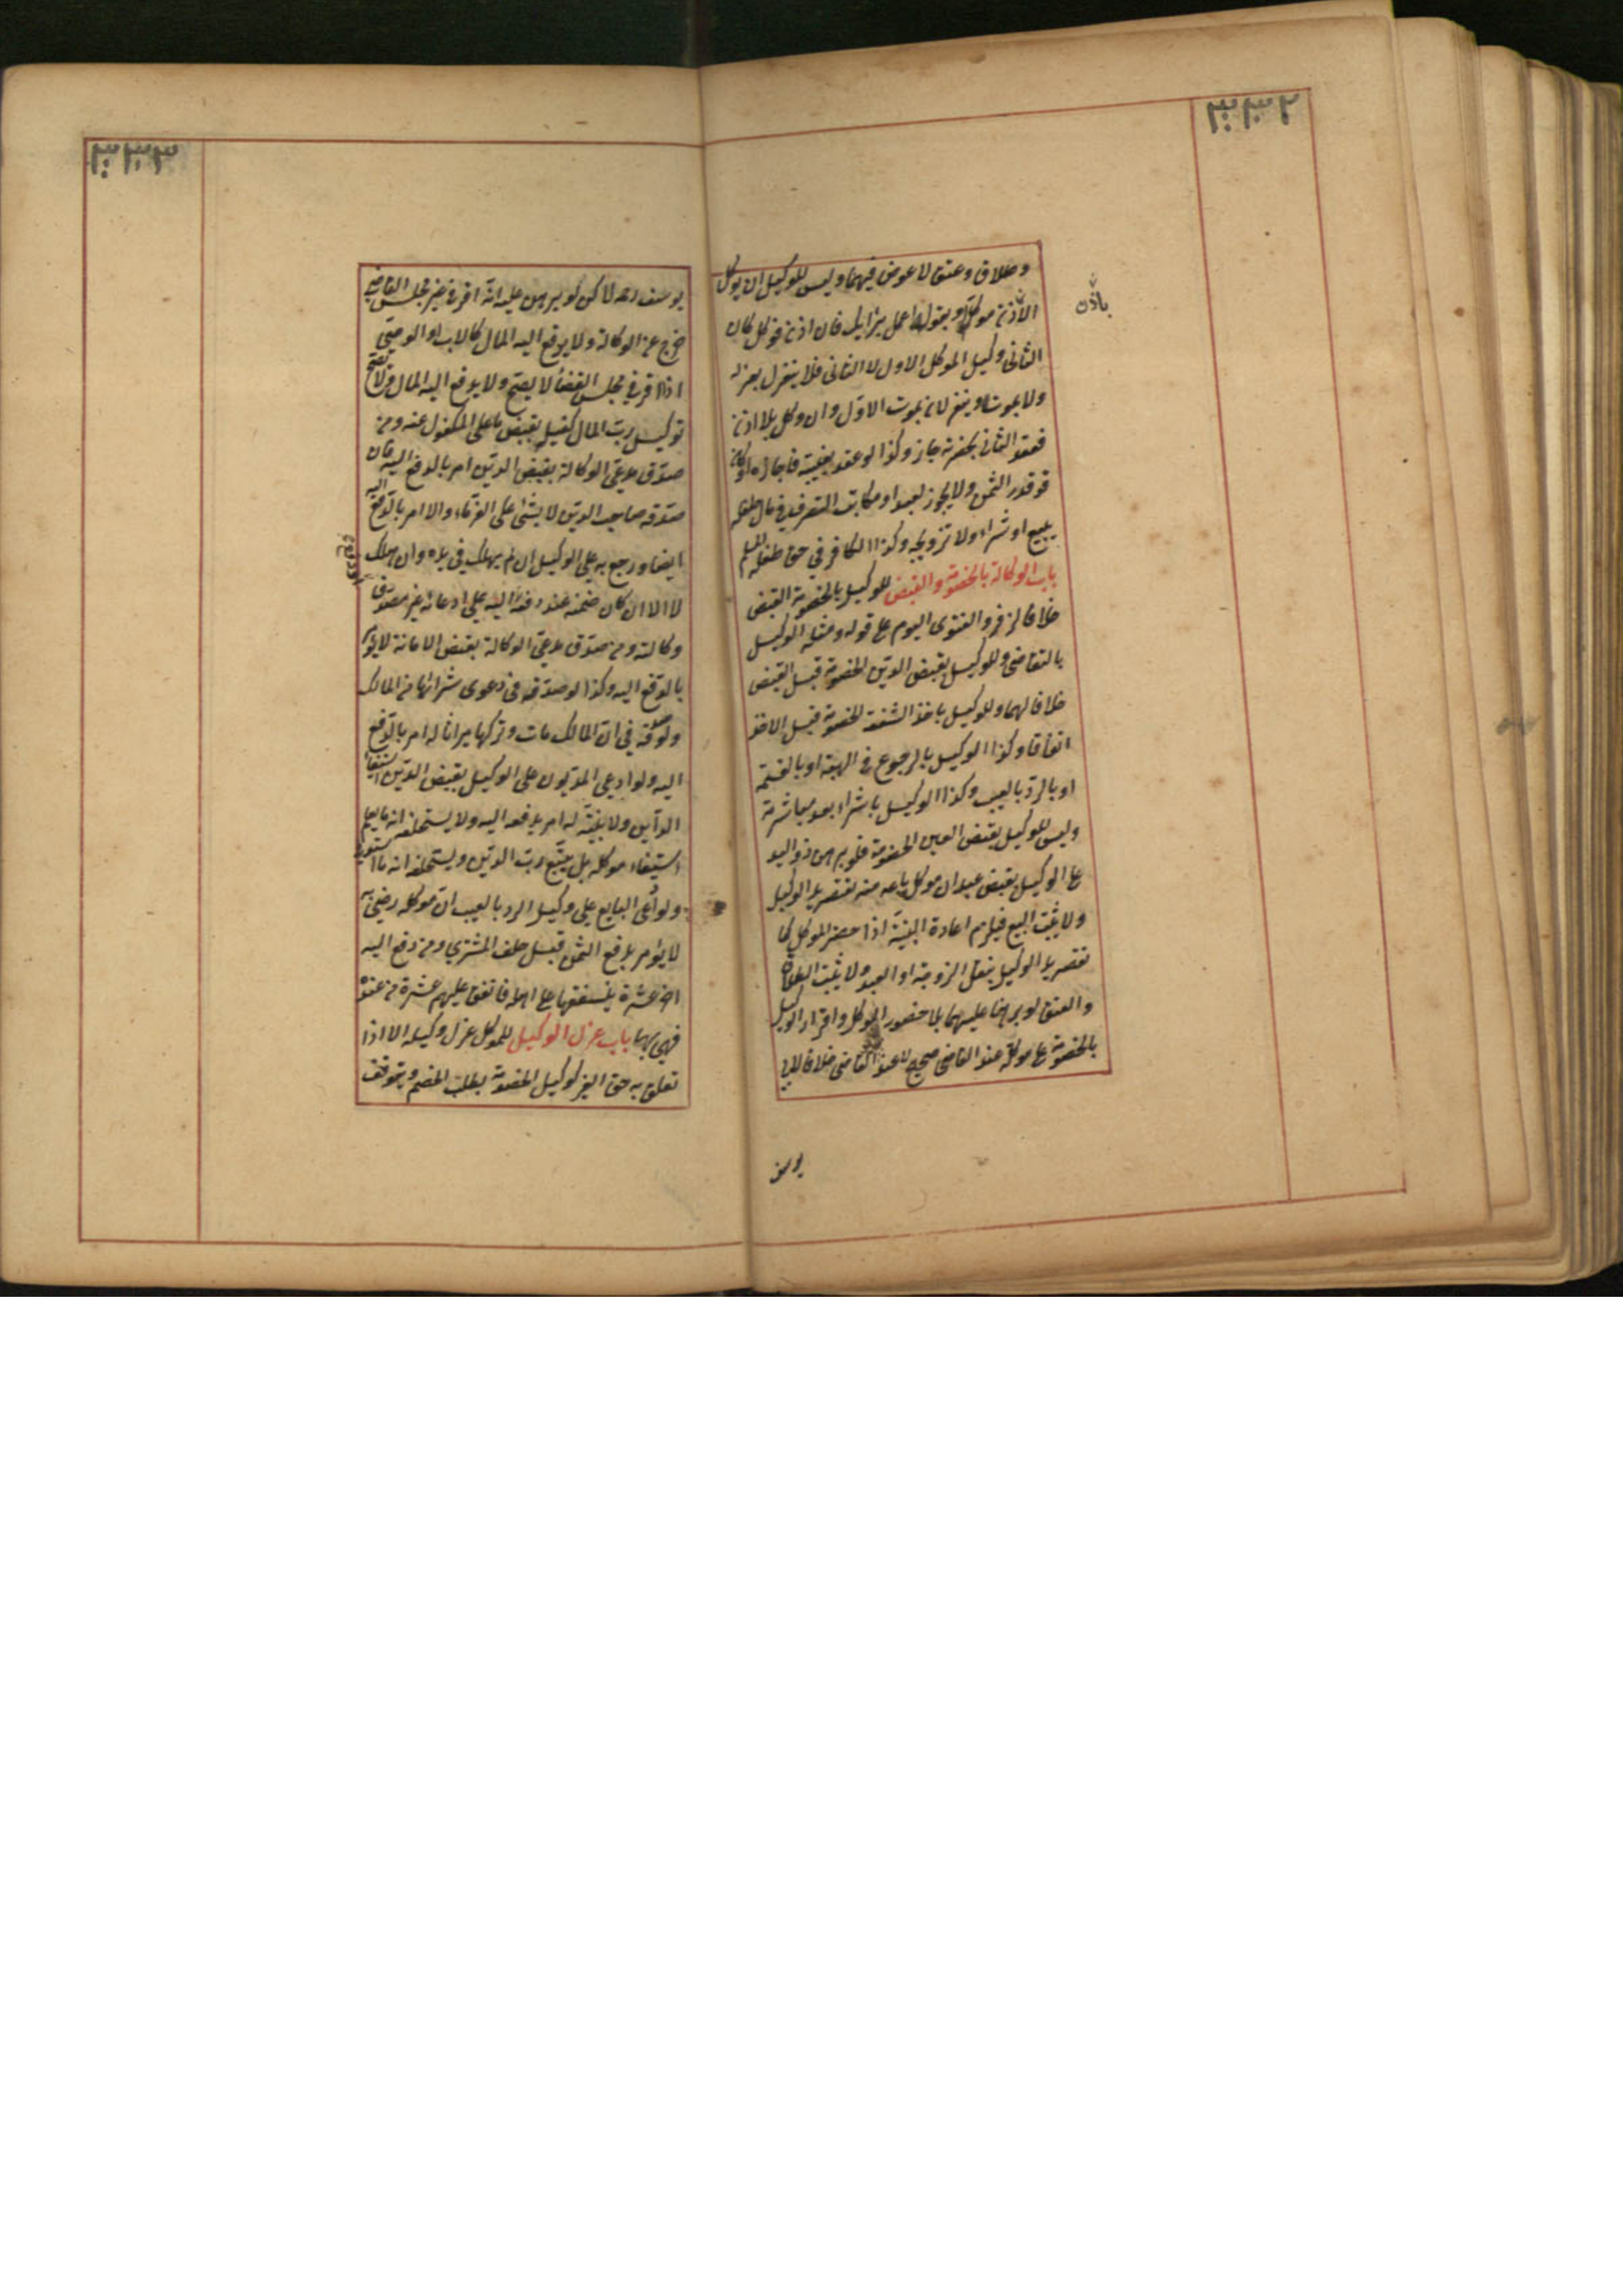 ٣٣٢
وطلاق وعتق لا عوض فيهما وليس للوكيل ان يوكل
الا باذن موكله او بقوله اعمل برأيك فان اذن فوكل كان
باذن
الثانى وكيل الموكل الاول لا الثانى فلا ينعزل بعزله
ولا بموته وينعزلان بموت الاول وان وكل بلا اذن
فعقد الثانى بحضرته جاز وكذا لو عقد بغيبته فاجازه او كان
قد قدر الثمن ولا يجوز لعبد او مكاتب التصرف في مال طفله
ببيع او شراء ولا تزويجه وكذا الكافر في حق طفله المسلم
باب الوكالة بالخصومة والقبض للوكيل بالخصومة القبض
خلافا لزفر والفتوى اليوم على قوله ومثله الوكيل
بالتقاضى وللوكيل بقبض الدين الخصومة قبل القبض
خلافا لهما وللوكيل باخذ الشفعة الخصومة قبل الاخذ
اتفاقا وكذا الوكيل بالرجوع في الهبة او بالقسمة
او بالرد بالعيب وكذا الوكيل بالشراء بعد مباشرته
وليس للوكيل بقبض العين الخصومة فلو برهن ذو اليد
على الوكيل بقبض عبد ان موكله باعه منه تقصر يد الوكيل
ولا يثبت البيع فيلزم اعادة البينة اذا حضر الموكل كما
تقصر يد الوكيل بنقل الزوجة او العبد ولا يثبت الطلاق
والعتق لو برهنا عليهما بلا حضور الموكل واقرار الوكيل
بالخصومة على موكله عند القاضى صحيح لا عند غير القاضى خلافا لابى
يوسف
٣٣٣
يوسف رحمه لاكن لو برهن عليه انه اقر في غير مجلس القاضى
خرج عن الوكالة ولا يدفع اليه المال كالاب او الوصى
اذا اقر في مجلس القضاء لا يصح ولا يدفع اليه المال ولا يصح
توكيل رب المال كفيله بقبض ما على المكفول عنه ومن
صدق مدعى الوكالة بقبض الدين امر بالدفع اليه فان
صدقه صاحب الدين لا يشئ على الغرماء والا امر بالدفع اليه
ايضا ورجع به على الوكيل ان لم يهلك في يده وان هلك
لا الا ان كان ضمنه عند دفعه اليه على ادعائه غير مصدق
وكالته ومن صدق مدعى الوكالة بقبض الامانة لا يؤمر
بالدفع اليه وكذا لو صدقه في دعوى شرائها من المالك
ولو صدقه في ان المالك مات وتركها ميراثا له امر بالدفع
اليه ولو ادعى المديون على الوكيل بقبض الدين استيفاء
الدائن ولا بينة له امر بدفعه اليه ولا يستحلفه انه ما يعلم
استيفاء موكله بل يتبع رب الدين ويستحلفه انه ما استوفى
ولو ادعى البايع على وكيل الرد بالعيب ان موكله رضى به
لا يؤمر بدفع الثمن قبل حلف المشترى ومن دفع اليه
اخر عشرة ينفقها على اهله فانفق عليهم عشرة من عنده
فهى بها باب عزل الوكيل للموكل عزل وكيله الا اذا
تعلق به حق الغير كوكيل الخصومة بطلب الخصم ويتوقف